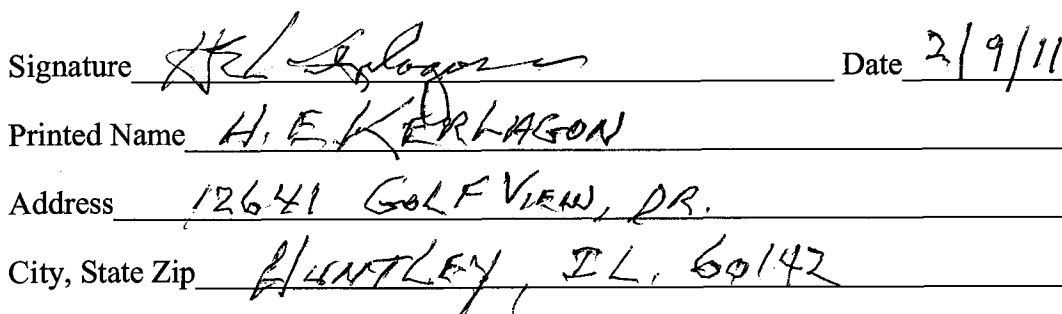 Signature Date 2/9/11
Printed Name H. E KERLAGON
Address 12641 GOLF VIEW, DR.
City, State Zip HUNTLEY, IL. 60142